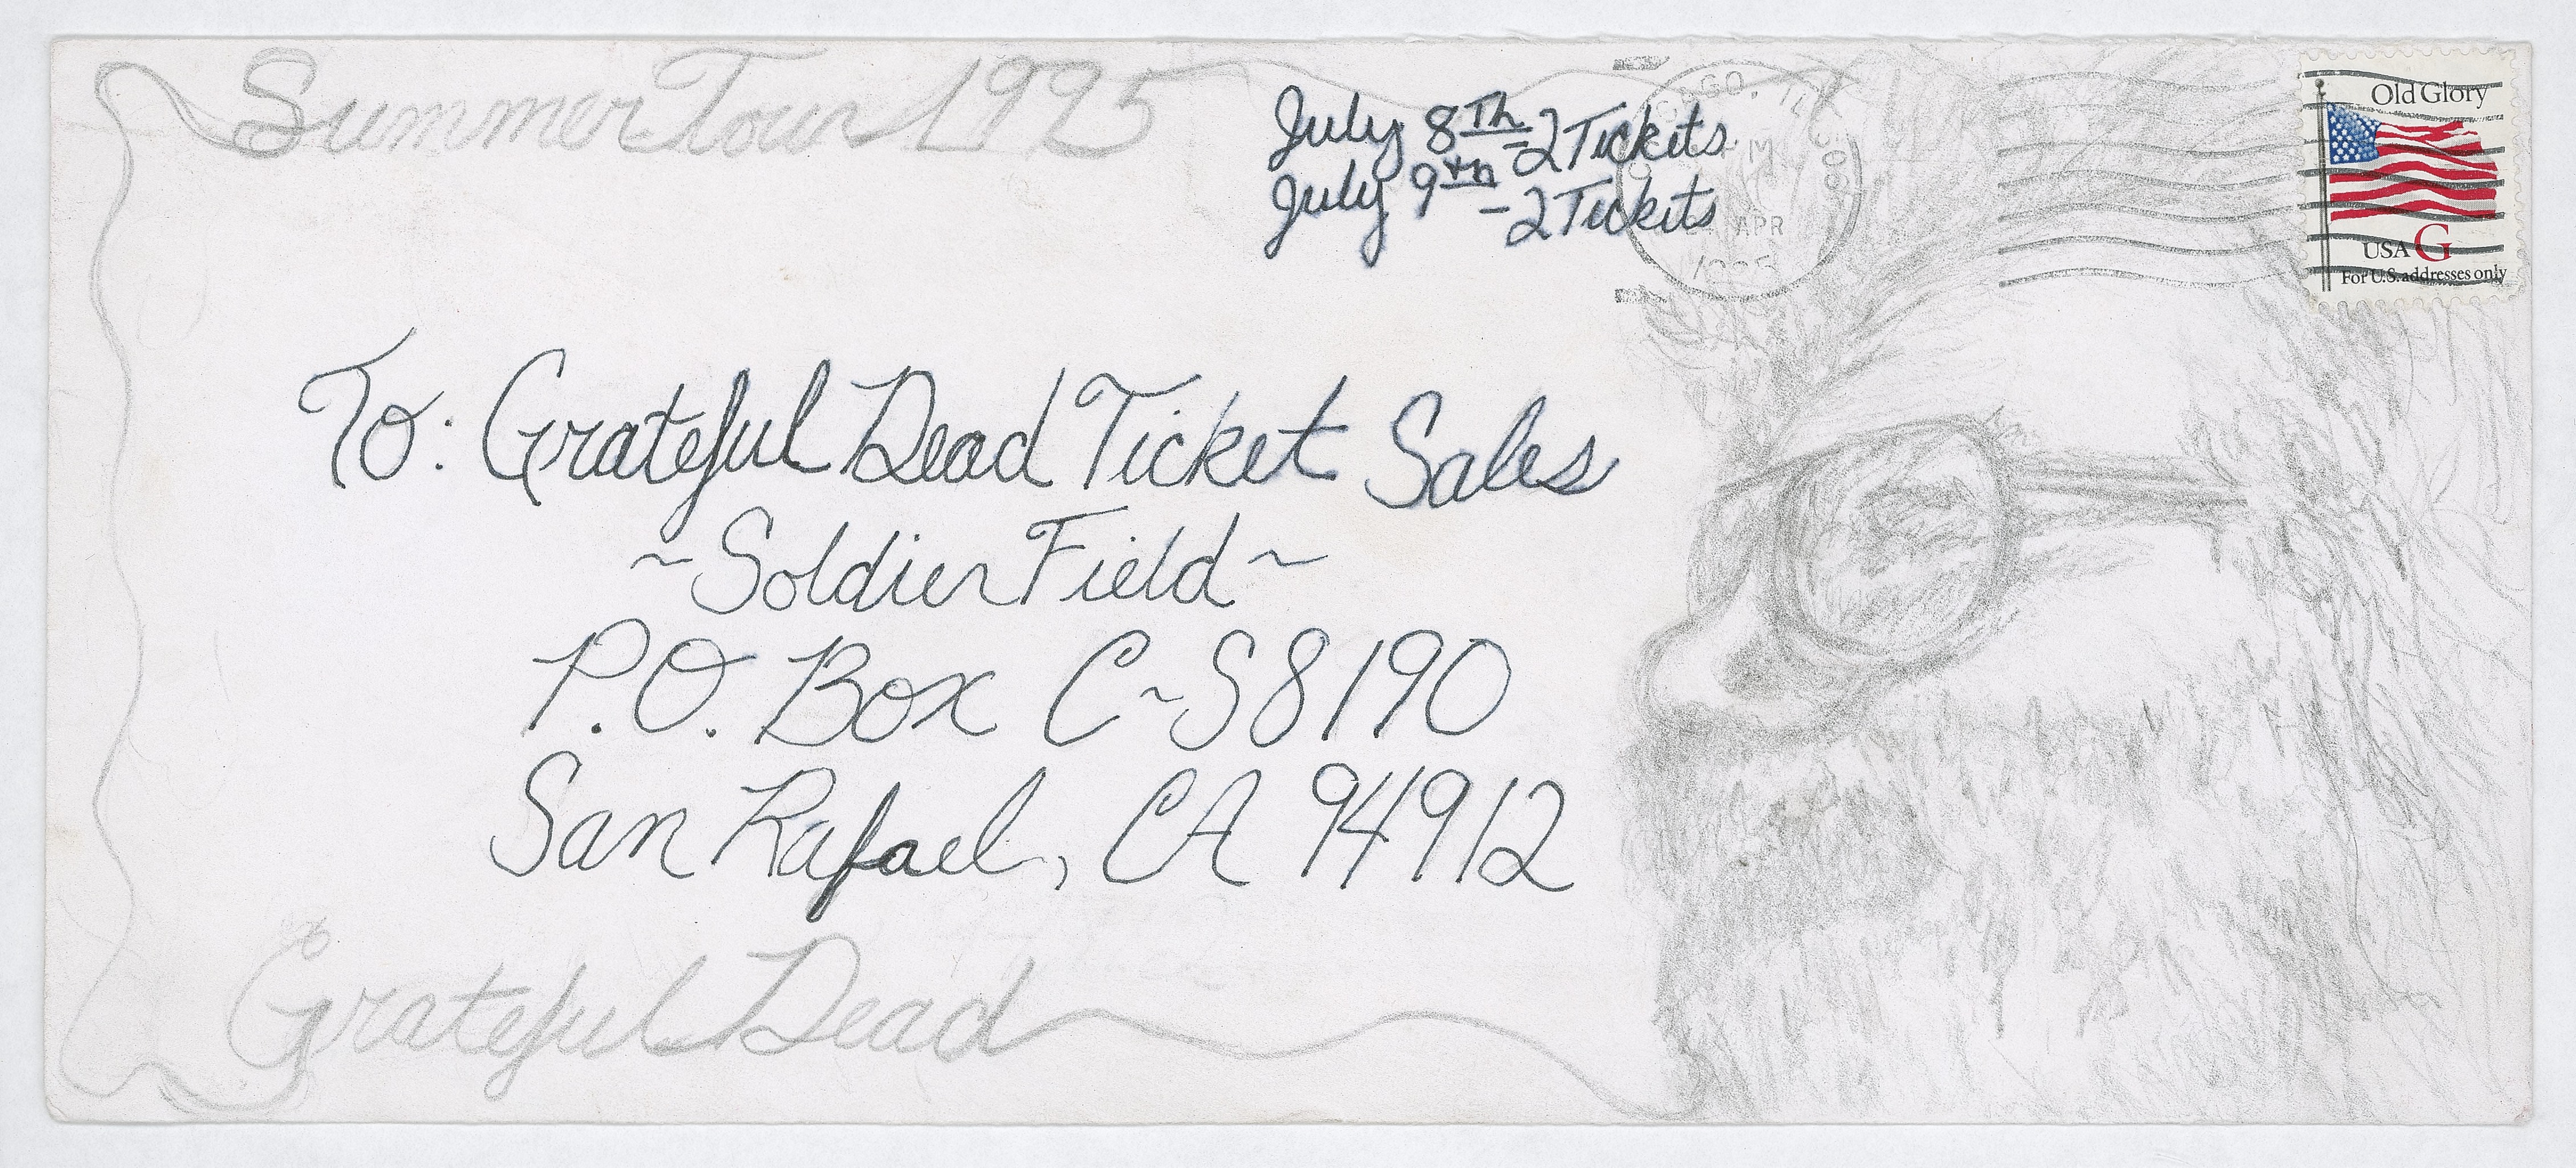 Summer Tour 1995
July 8Th - 2 Tickets
July 9th - 2 Tickets
APR
Old Glory
USA G
For U.S. addresses only
To: Grateful Dead Ticket Sales
~Soldier Field~
P.O. Box C-S8190
San Rafael, CA 94912
Grateful Dead